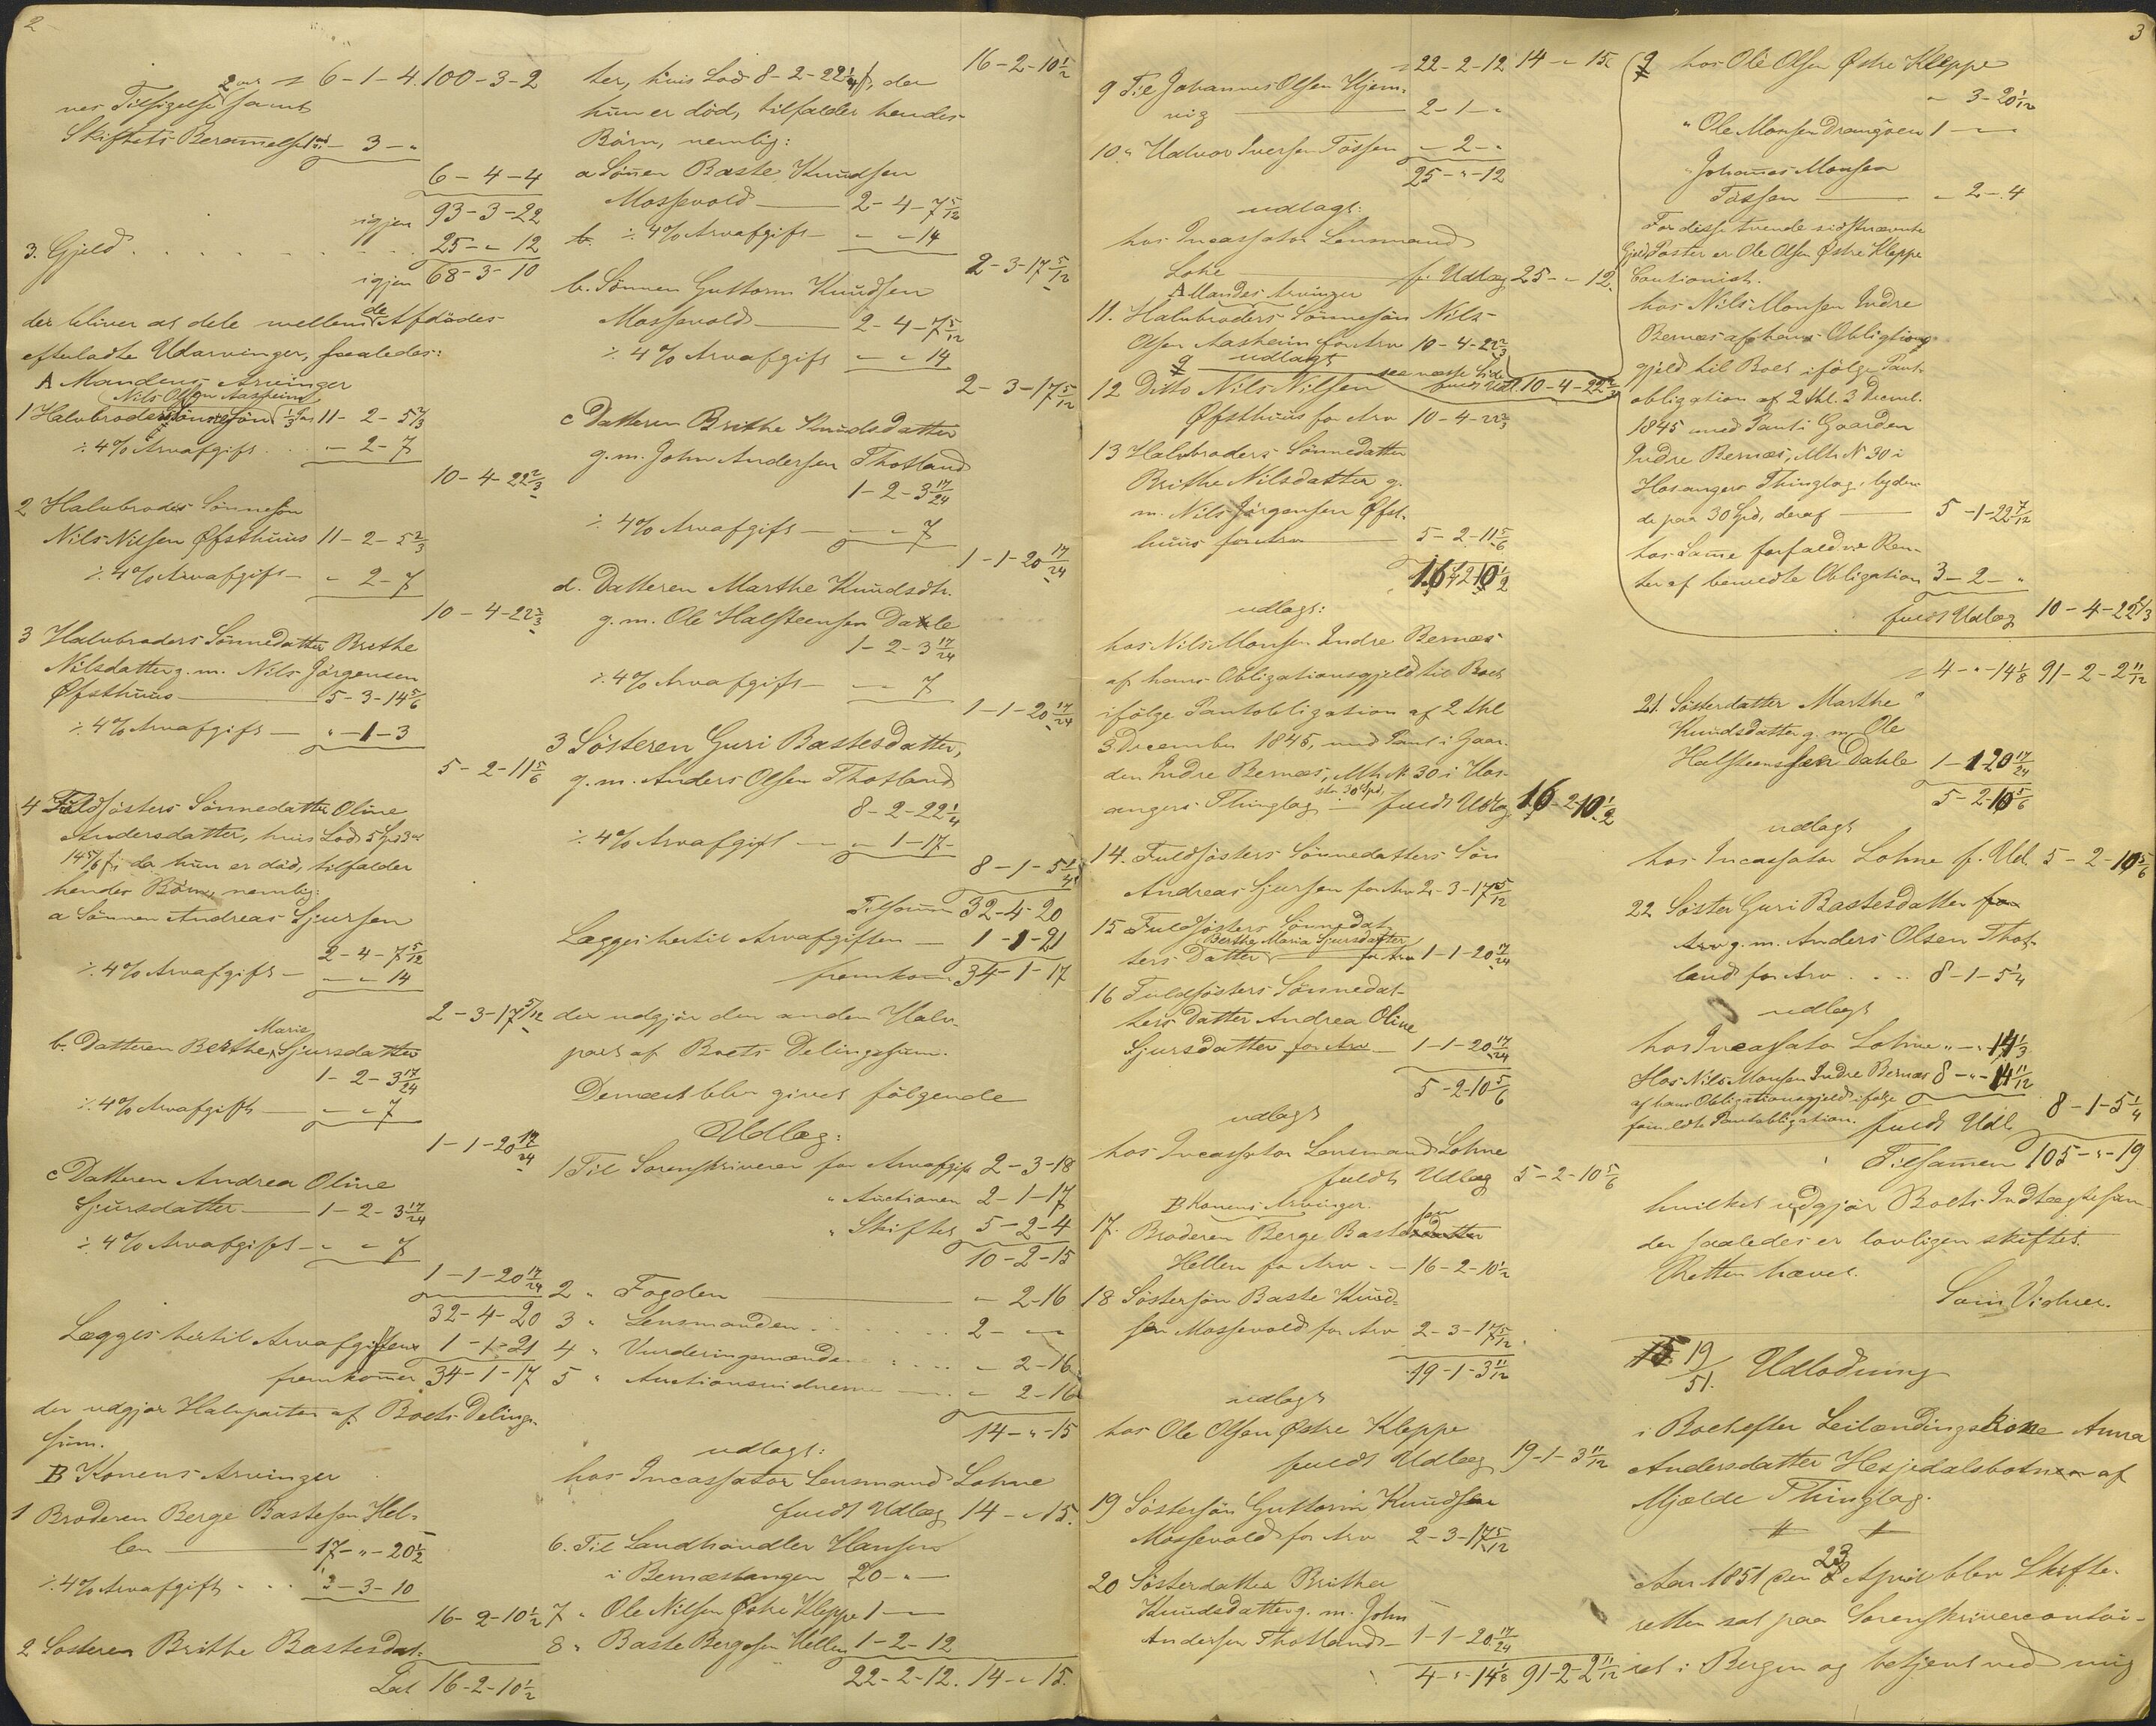 2
2 ort 6-1-4. 100-3-2
nes Tilsigelse samt
Skiftets Berammelse - 3 - "
6-4-4
igjen 93-3-22
3. Gjeld . . . . . . . . 25-"-12
igjen 68-3-10
der bliver at dele mellem de Afdödes
efterladte Udarvinger, saaledes:
A Mandens Arvinger
Nils Olsen Aasheim
1 Halvbroders Sönnesön 1/3 11-2-5 2/3
÷ 4% Arvafgift . . . - 2-7
10-4-22 2/3
2 Halvbroders Sönnesön
Nils Nilsen Øfsthuus 11-2-5 2/3
÷ 4% Arvafgift - " 2-7
10-4-22 2/3
3 Halvbroders Sönnedatter Brithe
Nilsdatter g.m. Nils Jörgensen
Øfsthuus 5-3-14 5/6
÷ 4% Arvafgift - "-1-3
5-2-11 5/6
4 Fuldsösters Sönnedatter Oline
Andersdatter, hvis Lod 5 Spd 3 ort
14 5/6 s; da hun er död, tilfalder
hendes Börn, nemlig:
a Sönnen Andreas Sjursen
2-4-7 5/12
÷ 4% Arvafgift - " " 14
2-3-17 5/12
Marie
b. Datteren Berthe Sjursdatter
1-2-3 17/24
÷ 4% Arvafgift - " " 7
1-1-20 17/24
c Datteren Andrea Oline
Sjursdatter - 1-2-3 17/24
÷ 4% Arvafgift - " " 7
1-1-20 17/24
32-4-20
Lægges hertil Arvafgiften 1-1-21
fremkommer 34-1-17
der udgjör Halvparten af Boets Delings-
sum.
B Konens Arvinger
1 Broderen Berge Bastesen Hel-
len - 17-"-20 1/2
÷ 4% Arvafgift . . . "-3-10
16-2-10 1/2
2 Sösteren Brithe Bastesdat-
Lat 16-2-10 1/2
16-2-10 1/2
ter, hvis Lod 8-2-22 1/4 s, der
hun er död, tilfalder hendes
Börn, nemlig:
a Sönnen Baste Knudsen
Mossevold - 2-4-7 5/12
÷ 4% Arvafgift - " " 14
2-3-17 5/12
b. Sönnen Guttorm Knudsen
Mossevold - 2-4-7 5/12
÷ 4% Arvafgift - " 14
2-3-17 5/12
c Datteren Brithe Knudsdatter
g.m. John Andersen Thotland
1-2-3 17/24
÷ 4% Arvafgift - " " 7
1-1-20 17/24
d. Datteren Marthe Knudsdtr.
g.m. Ole Halsteensen Dahle
1-2-3 17/24
÷ 4% Arvafgift - " 7
1-1-20 17/24
3 Sösteren Guri Bastesdatter,
g.m. Anders Olsen Thotland
8-2-22 1/4
÷ 4% Arvafgift - " 1-17-
8-1-5 1/4
Tilsamm 32-4-20
Lægges hertil Arvafgiften - 1-1-21
fremkom 34-1-17
der udgjör den anden Halv-
part af Boets Delingssum.
Dernæst blev givet fölgende
Udlæg:
1 Til Sorenskriveren for Arvafgift 2-3-18
" Auctionen 2-1-17
" Skiftet 5-2-4
10-2-15
2 " Fogden - " 2-16
3 " Lensmanden . . . . 2- " "
4 " Vurderingsmændene . . . - 2-16
5 " Auctionsvidnerne - " 2-16
14-"-15
udlagt:
hos Incassator Lensmand Lohne
fuldt Udlæg 14-"15.
6. Til Landhandler Hansen
i Bernæstangen 20-"-
7 " Ole Nilsen Østre Kleppe 1 - "
8 " Baste Bergesen Hellen 1-2-12
22-2-12. 14-"-15.
22-2-12 14-"-15.
9 Til Johannes Olsen Hjem-
vig - 2-1-"
10 " Halvor Iversen Fössen - 2-"
25-"-12
udlagt:
hos Incassator Lensmand
Lohe - f. Udlæg 25-"-12.
A Mandes Arvinger
11. Halvbroders Sönnesön Nils
Olsen Aasheim for Arv 10-4-22 2/3
udlagt
see næste Side
fuldt Udl. 10-4-22 2/3
12 Ditto Nils Nilsen
Øfsthuus for Arv 10-4-22 2/3
13 Halvbroders Sönnedatter
Brithe Nilsdatter g.
m. Nils Jörgensen Øfst-
huus for Arv 5-2-11 5/6
16-2-10 1/2
udlagt:
hos Nils Monsen Indre Bernæs
af hans Obligationsgjeld til Boet
ifölge Pantobligation af 2 thl
3 December 1845, med Pant i Gaar-
den Indre Bernæs, Mtr. N 30 i Hos-
str. 30 Spd,
angers Thinglag - fuldt Udlæg 16-2-10 1/2
14. Fuldsösters Sönnedatters Sön
Andreas Sjursen for Arv 2-3-17 5/12
15 Fuldsösters Sönnedat-
Berthe Maria Sjursdatter
ters Datter for Arv 1-1-20 17/24
16 Fuldsösters Sönnedat-
ters Datter Andrea Oline
Sjursdatter for Arv - 1-1-20 17/24
5-2-10 5/6
udlagt
hos Incassator Lensmand Lohne
fuldt Udlæg 5-2-10 5/6
B Konens Arvinger.
17. Broderen Berge Bastesen
Hellen for Arv - - 16-2-10 1/2
18 Söstersön Baste Knud-
sen Mossevold for Arv 2-3-17 5/12
19-1-3 11/12
udlagt
hos Ole Olsen Østre Kleppe
fuldt Udlæg 19-1-3 11/12
19 Söstersön Guttorm Knudsen
Mossevold for Arv 2-3-17 5/12
20 Sösterdatter Brithe
Knudsdatter g.m. John
Andersen Thotland - 1-1-20 17/24
4-"-14 1/8 91-2-2 11/12
3
hos Ole Olsen Østre Kleppe
" 3-20 1/12
" Ole Monsen Drangöen 1 - "
" Johannes Monsen
Fössen - " 2-4
For disse tvende sidstnævnte
Gjeldsposter er Ole Olsen Østre Kleppe
Cautionist.
hos Nils Monsen Indre
Bernæs af hans Obligtions-
gjeld til Boet ifölge Pant-
obligation af 2 thl. 3 Decmb.
1845 med Pant i Gaarden
Indre Bernæs, Mtr. N 30 i
Hosangers Thinglag, lyden-
de paa 30 Spd, deraf - 5-1-22 7/12
hos Samme forfaldne Ren-
ter af bemeldte Obligation 3-2-"
fuldt Udlæg 10-4-22 2/3
4-"-14 1/8 91-2-2 11/12
21. Sösterdatter Marthe
Knudsdatter g.m. Ole
Halsteensen Dahle 1-1-20 17/24
5-2-10 5/6
udlagt
hos Incassator Lohne f. Udl. 5-2-10 5/6
22 Söster Guri Bastesdatter for
Arv g.m. Anders Olsen Thot-
land for Arv . . . 8-1-5 1/4
udlagt
hos Incassator Lohne "-"-14 1/3
Hos Nils Monsen Indre Bernæs 8-"-14 11/12
af hans Obligationsgjeld ifölge
formeldte Pantobligation. fuldt Udl. 8-1-5 1/4
Tilsammen 105-"-19
hvilket udgjör Boets Indtægtssum
der saaledes er lovligen skiftet.
Retten hævet.
19/51. Udlodning
i Boet efter Leilændingskone Anna
Andersdatter Hesjedalsbotnen af
Mjelde Thinglag.
Aar 1851 den 23 April blev Skifte-
retten sat paa Sorenskrivercontoi-
ret i Bergen og betjent ved mig